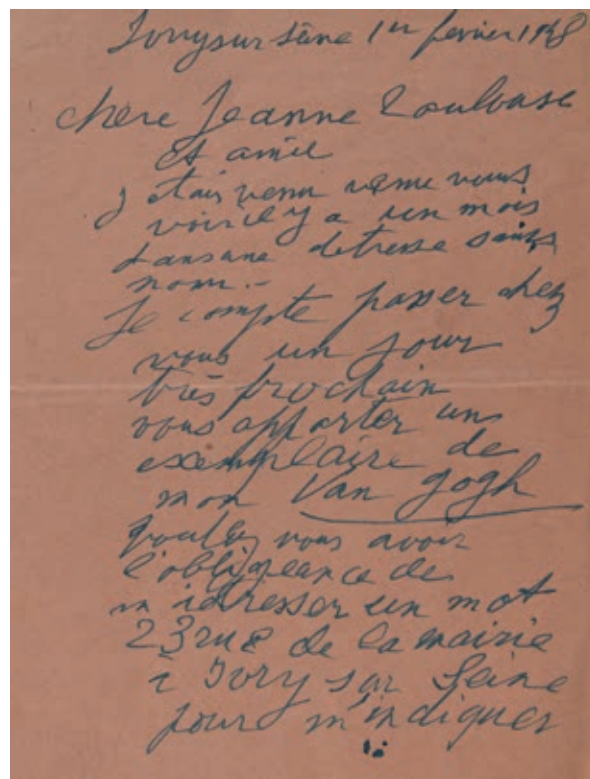 Ivry sur Seine 1er fevrier 1948
chère Jeanne Toulouse
et amie
J etais venu meme vous
voir il y a un mois
dans une detresse sans
nom.-
Je compte passer chez
vous un jour
très prochain
vous apporter un
exemplaire de
mon Van Gogh
voulez vous avoir
l'obligeance de
m adresser un mot
23 rue de la mairie
à Ivry sur Seine
pour m'indiquer